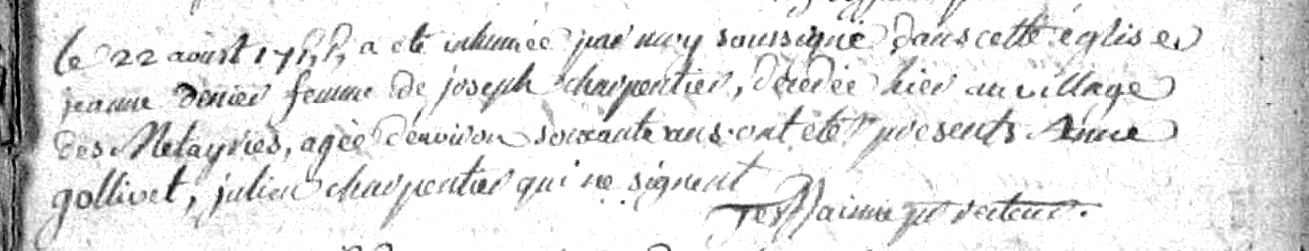 le 22 aoust 1755 a ete inhumée par moy soussigné dans cette eglise
jeanne denier femme de joseph charpentier, decedée hier au village
des Metayries, agée denviron soixante ans. ont été presents Anne
gollivet, julien charpentier qui ne signent
recteur.